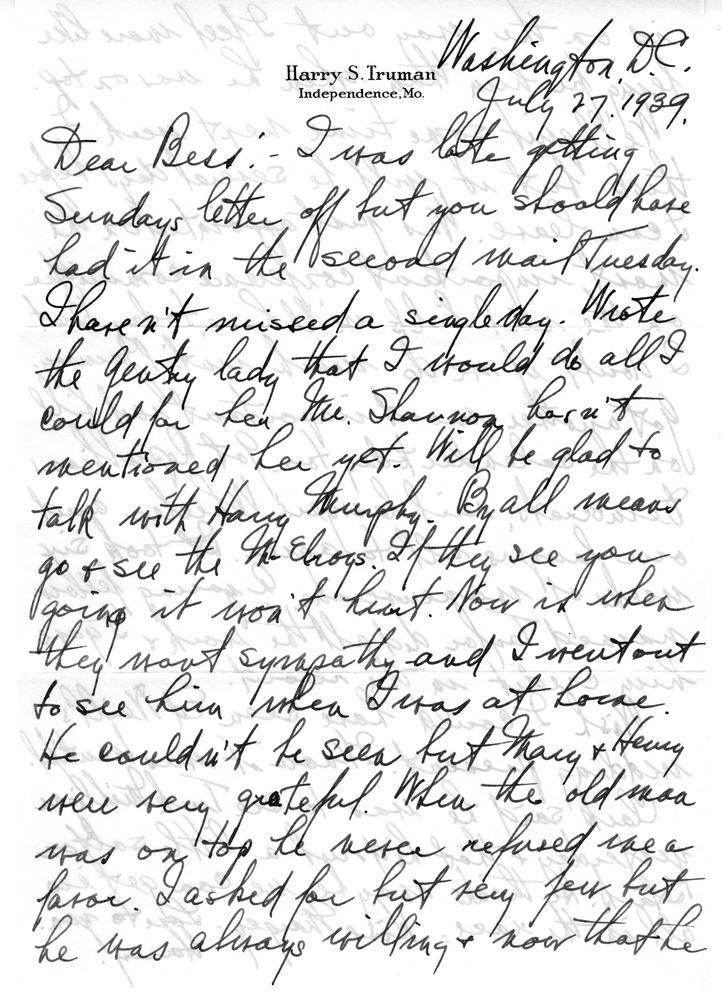 Harry S. Truman
Independence, Mo.
Washington, D.C.
July 27, 1939.
Dear Bess:- I was late getting
Sundays letter off but you should have
had it in the second mail Tuesday.
I haven't missed a single day. Wrote
the Gentry lady that I would do all I
could for her. Mr. Shannon hasn't
mentioned her yet. Will be glad to
talk with Harry Murphy. By all means
go & see the McElroys. If they see you
going it won't hurt. Now is when
they want sympathy and I went out
to see him when I was at home.
He couldn't be seen but Mary & Henry
were very grateful. When the old man
was on top he never refused me a
favor. I asked for but very few but
he was always willing & now that he